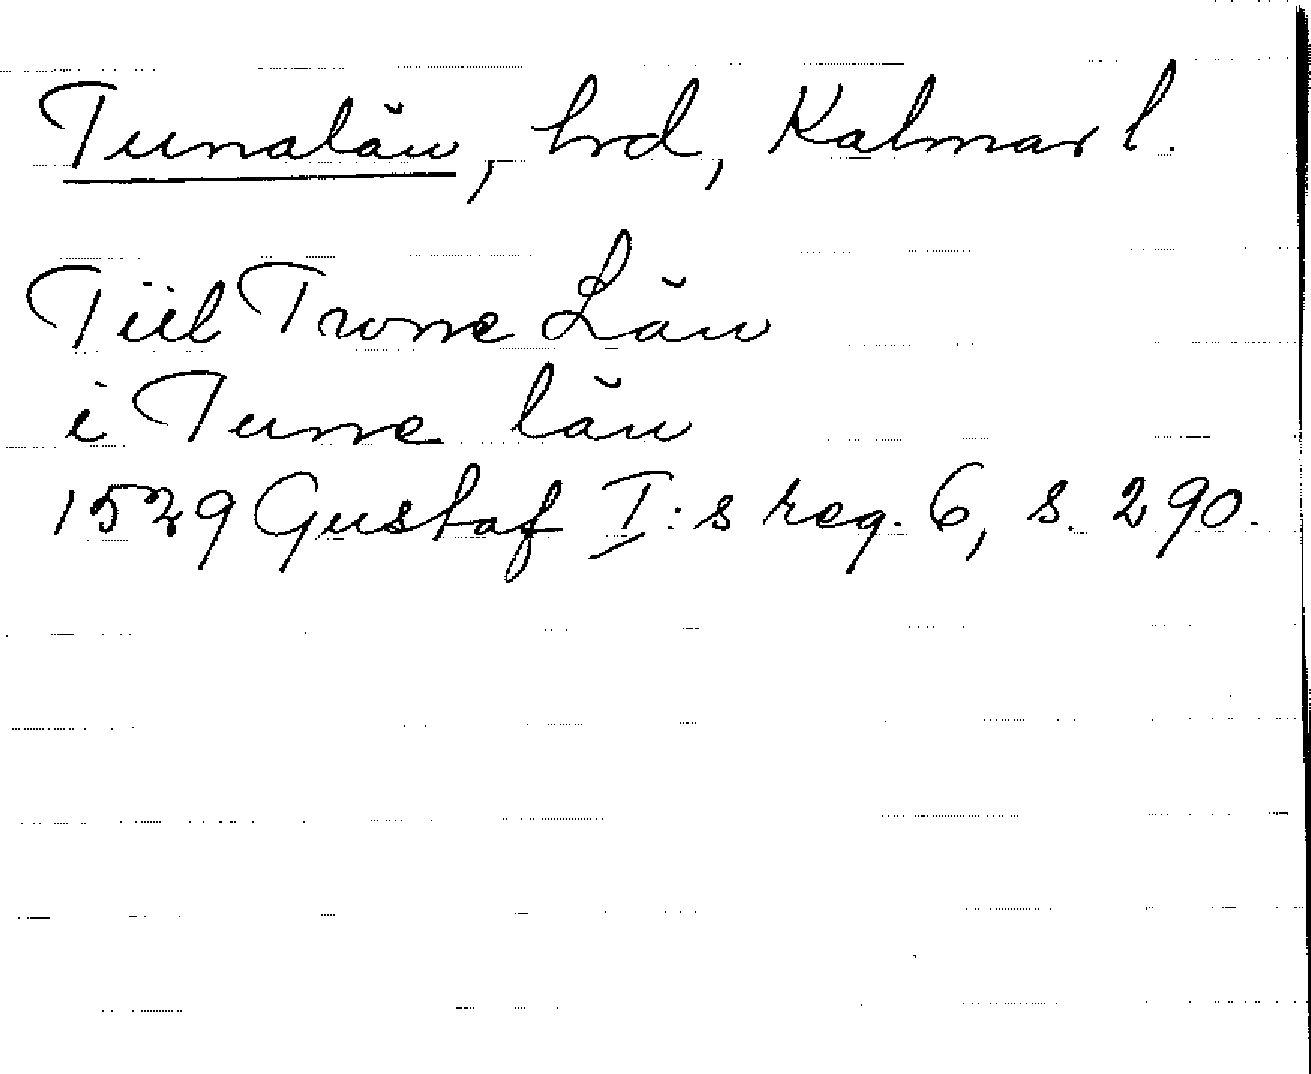 Tunalän, hd, Kalmar l.
Tiil Twne Län
i Tune län
1529 Gustaf I:s reg. 6, s. 290.